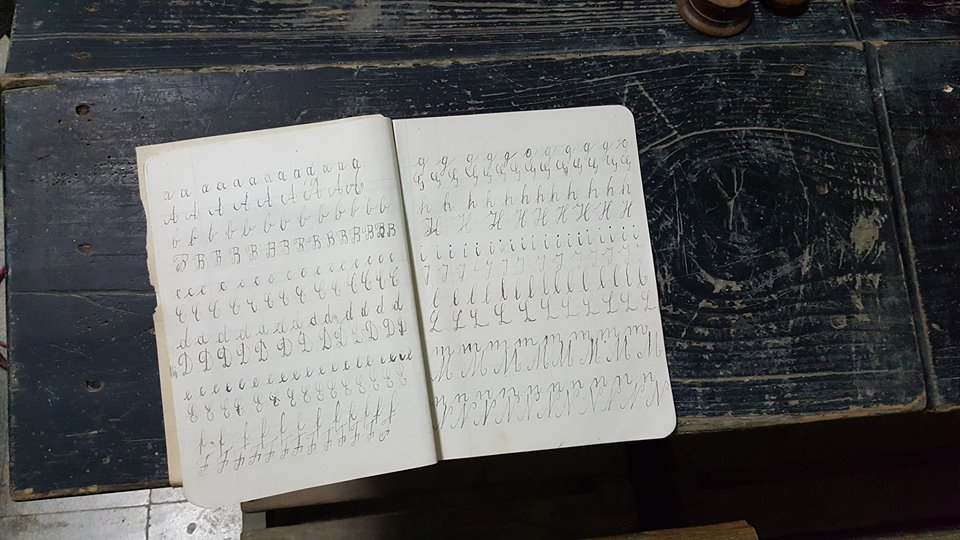 a a a a a a a a a a a a a
A A A A A A A A A
b b b b b b b b b b b b b
B B B B B B B B B B B B B B B
c c c c c c c c c c c c c
C C C C C C C C C C C C C C
d d d d d d d d d d d d d
D D D D D D D D D D D D
e e e e e e e e e e e e e e e e
E E E E E E E E E E E E
f f f f f f f f f f f
F F F F F F F F F F F F
g g g g g g g g g g g
G G G G G G G G G G G G
h h h h h h h h h h h h
H H H H H H H H H
i i i i i i i i i i i i i i i
I I I I I I I I I I I I
l l l l l l l l l l l l
L L L L L L L L L L L
m m m m m m m m m
M M M M M M M M M
n n n n n n n n n n n
N N N N N N N N N N N